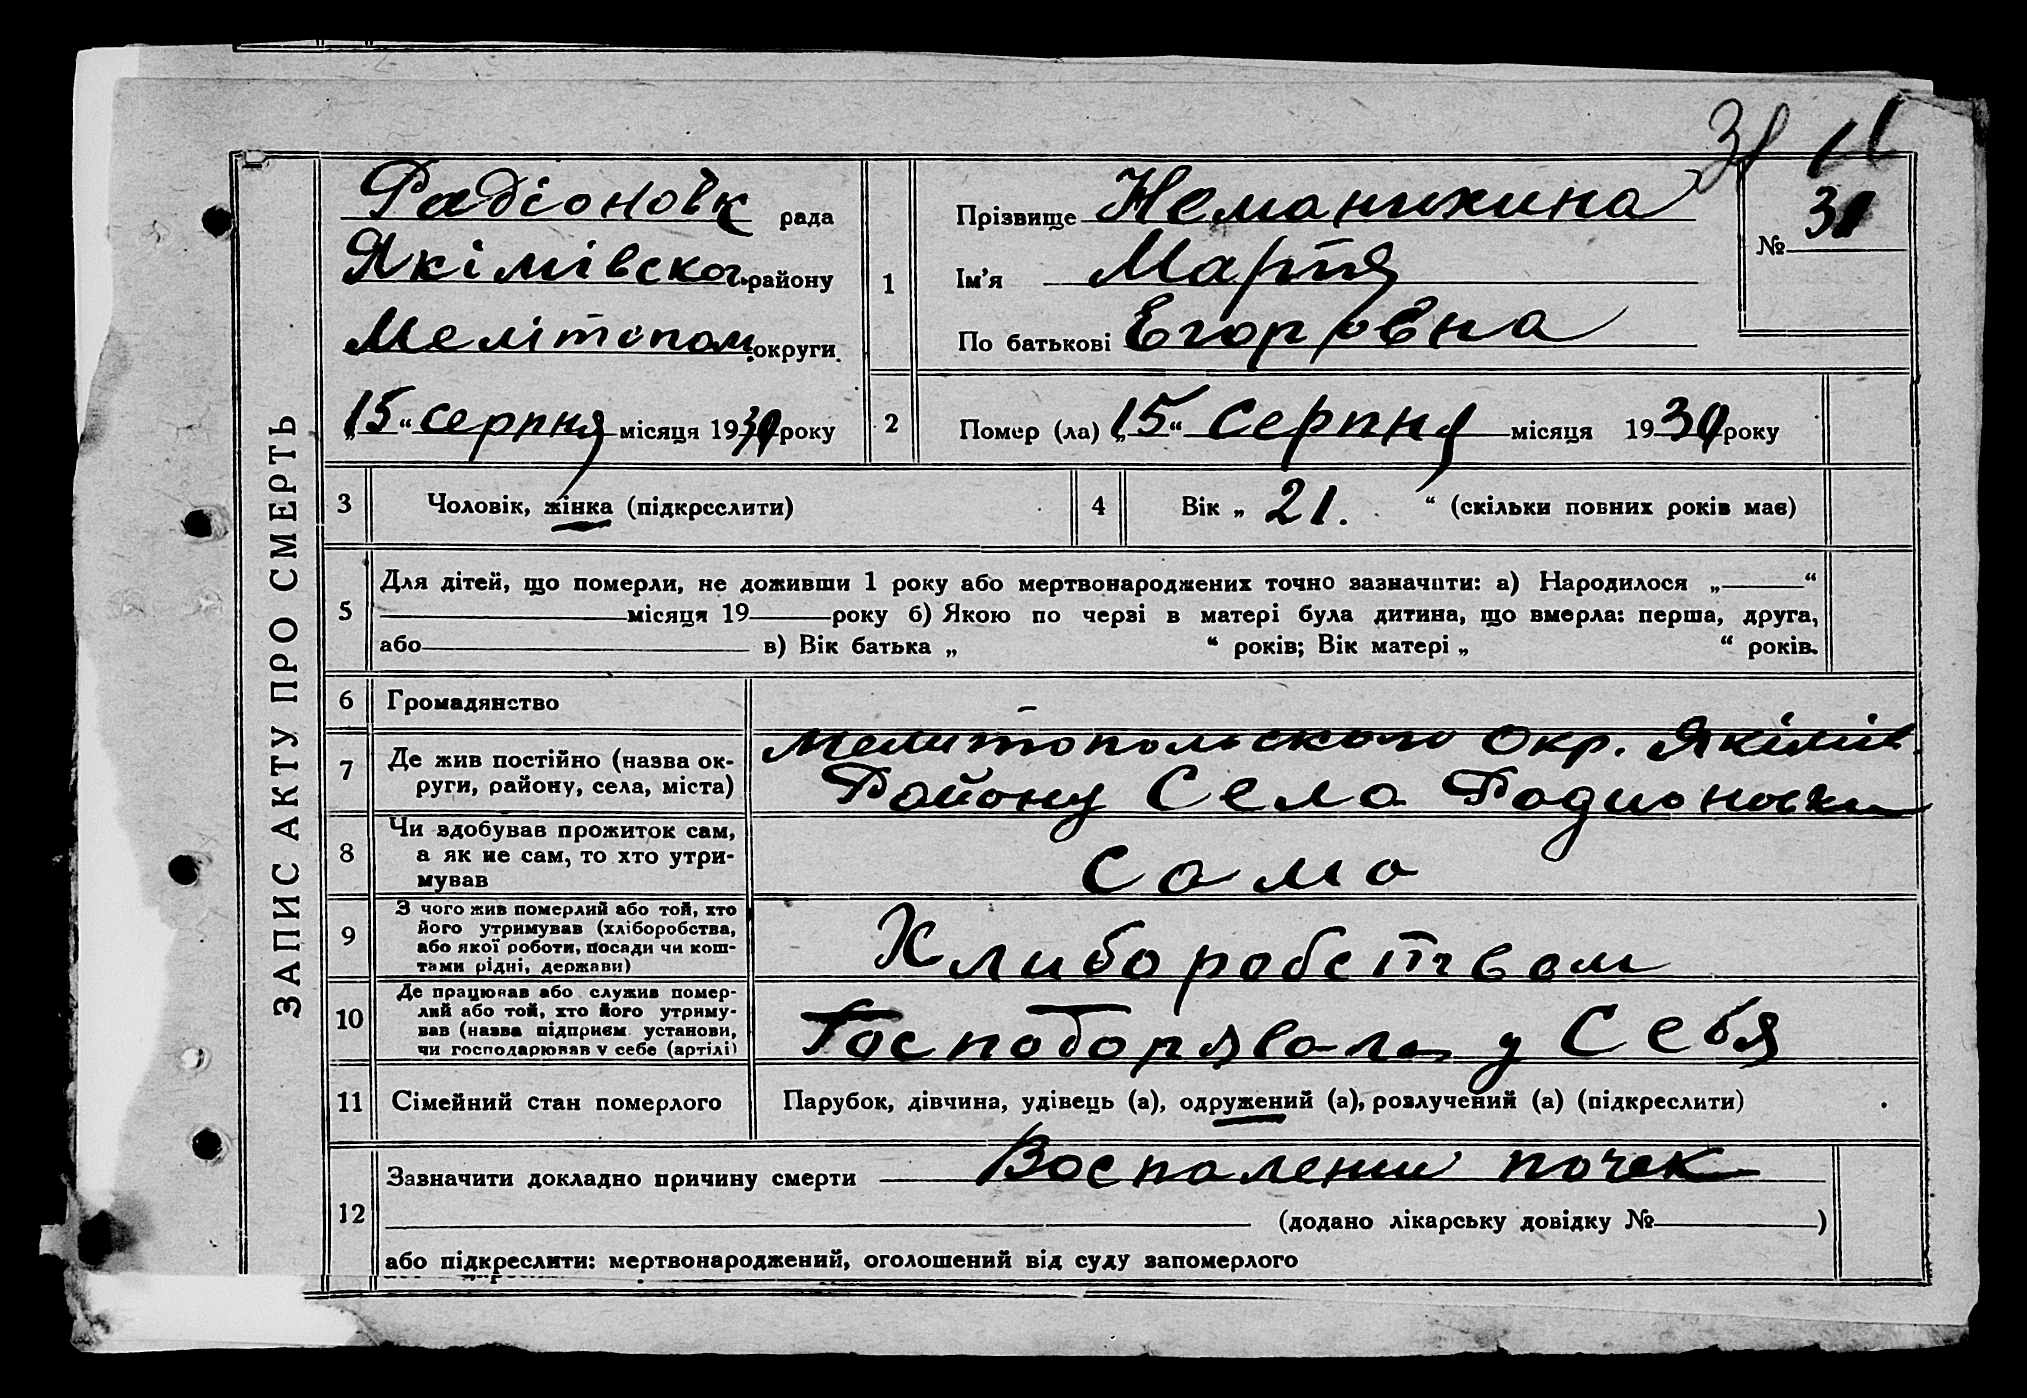 ЗАПИС АКТУ ПРО СМЕРТЬ
Радіоновк рада
Якімівског району
Мелітопол округи
„15“ серпня місяця 1930 року
1
Прізвище Неманихина
Ім’я Мартя
По батькові Егоровна
№ 31
2
Помер (ла) „15“ серпня місяця 1930 року
3 Чоловік, жінка (підкреслити)
4 Вік „ 21. “ (скільки повних років має)
5 Для дітей, що померли, не доживши 1 року або мертвонароджених точно зазначити: а) Народилося „ “
місяця 19 року б) Якою по черзі в матері була дитина, що вмерла: перша, друга,
або в) Вік батька „ “ років; Вік матері „ “ років.
6 Громадянство –
7 Де жив постійно (назва ок-
руги, району, села, міста)
Мелитопольского Окр. Якімів
Району Село Родионовки
8 Чи здобував прожиток сам,
а як не сам, то хто утри-
мував
Сама
9 З чого жив померлий або той, хто
його утримував (хліборобства,
або якої роботи, посади чи кош-
тами рідні, держави)
Хлиборобством
10 Де працював або служив помер-
лий або той, хто його утриму-
вав (назва підприєм. установи,
чи господарював у себе (артілі)
Господорявала у Себя
11 Сімейний стан померлого Парубок, дівчина, удівець (а), одружений (а), розлучений (а) (підкреслити)
12 Зазначити докладно причину смерти Воспалении почек
(додано лікарську довідку № )
або підкреслити: мертвонароджений, оголошений від суду запомерлого